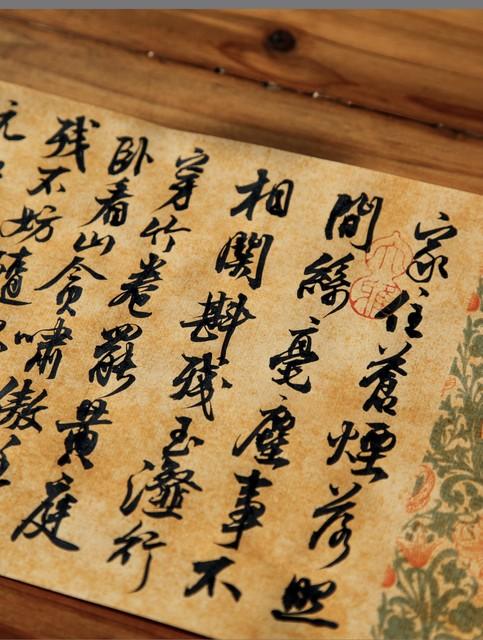 家住蒼煙落照
間絲毫塵事不
相關斟残玉瀣行
穿竹卷罷黄庭
卧看山貪嘯傲任
残不妨隨
元